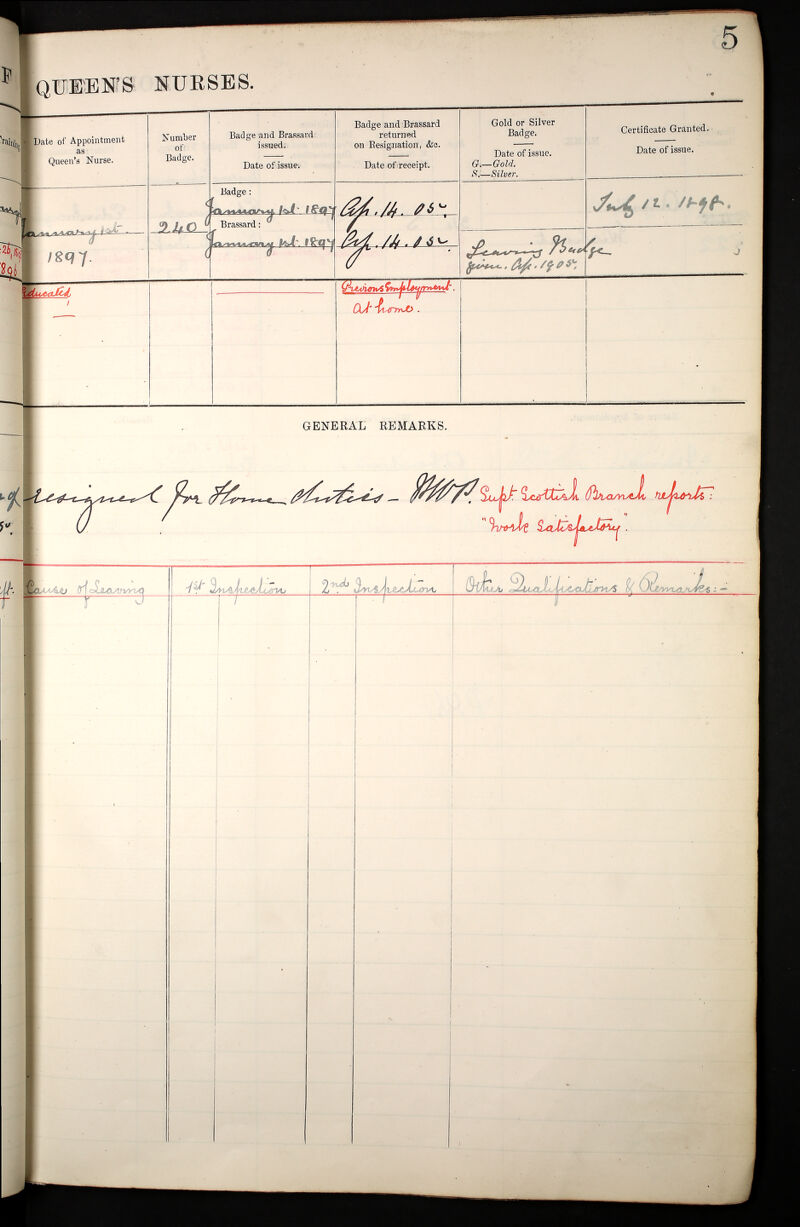 5
QUEEN'S NURSES.
Date of Appointment
as
Queen's Nurse.
Number
of
Badge.
Badge and Brassard
issued.
Date of issue.
Badge and Brassard
returned
on Resignation, &c.
Date of receipt.
Gold or Silver
Badge.
Date of issue.
G.—Gold.
S.—Silver.
Certificate Granted.
Date of issue.
January 1st.
1897.
240
Badge:
January 1st 1897
Brassard:
January 1st 1897
Ap. 14. 05.
Ap. 14. 05.
Leaving Badge
given. Ap. 1905.
July 12. 1898.
Educated
Previous Employment.
At home.
GENERAL REMARKS.
resigned for Home duties –
Supt Scottish Branch reports:
"Work Satisfactory".
Cause of Leaving
1st Inspection
2nd Inspection
Other Qualifications & Remarks:-